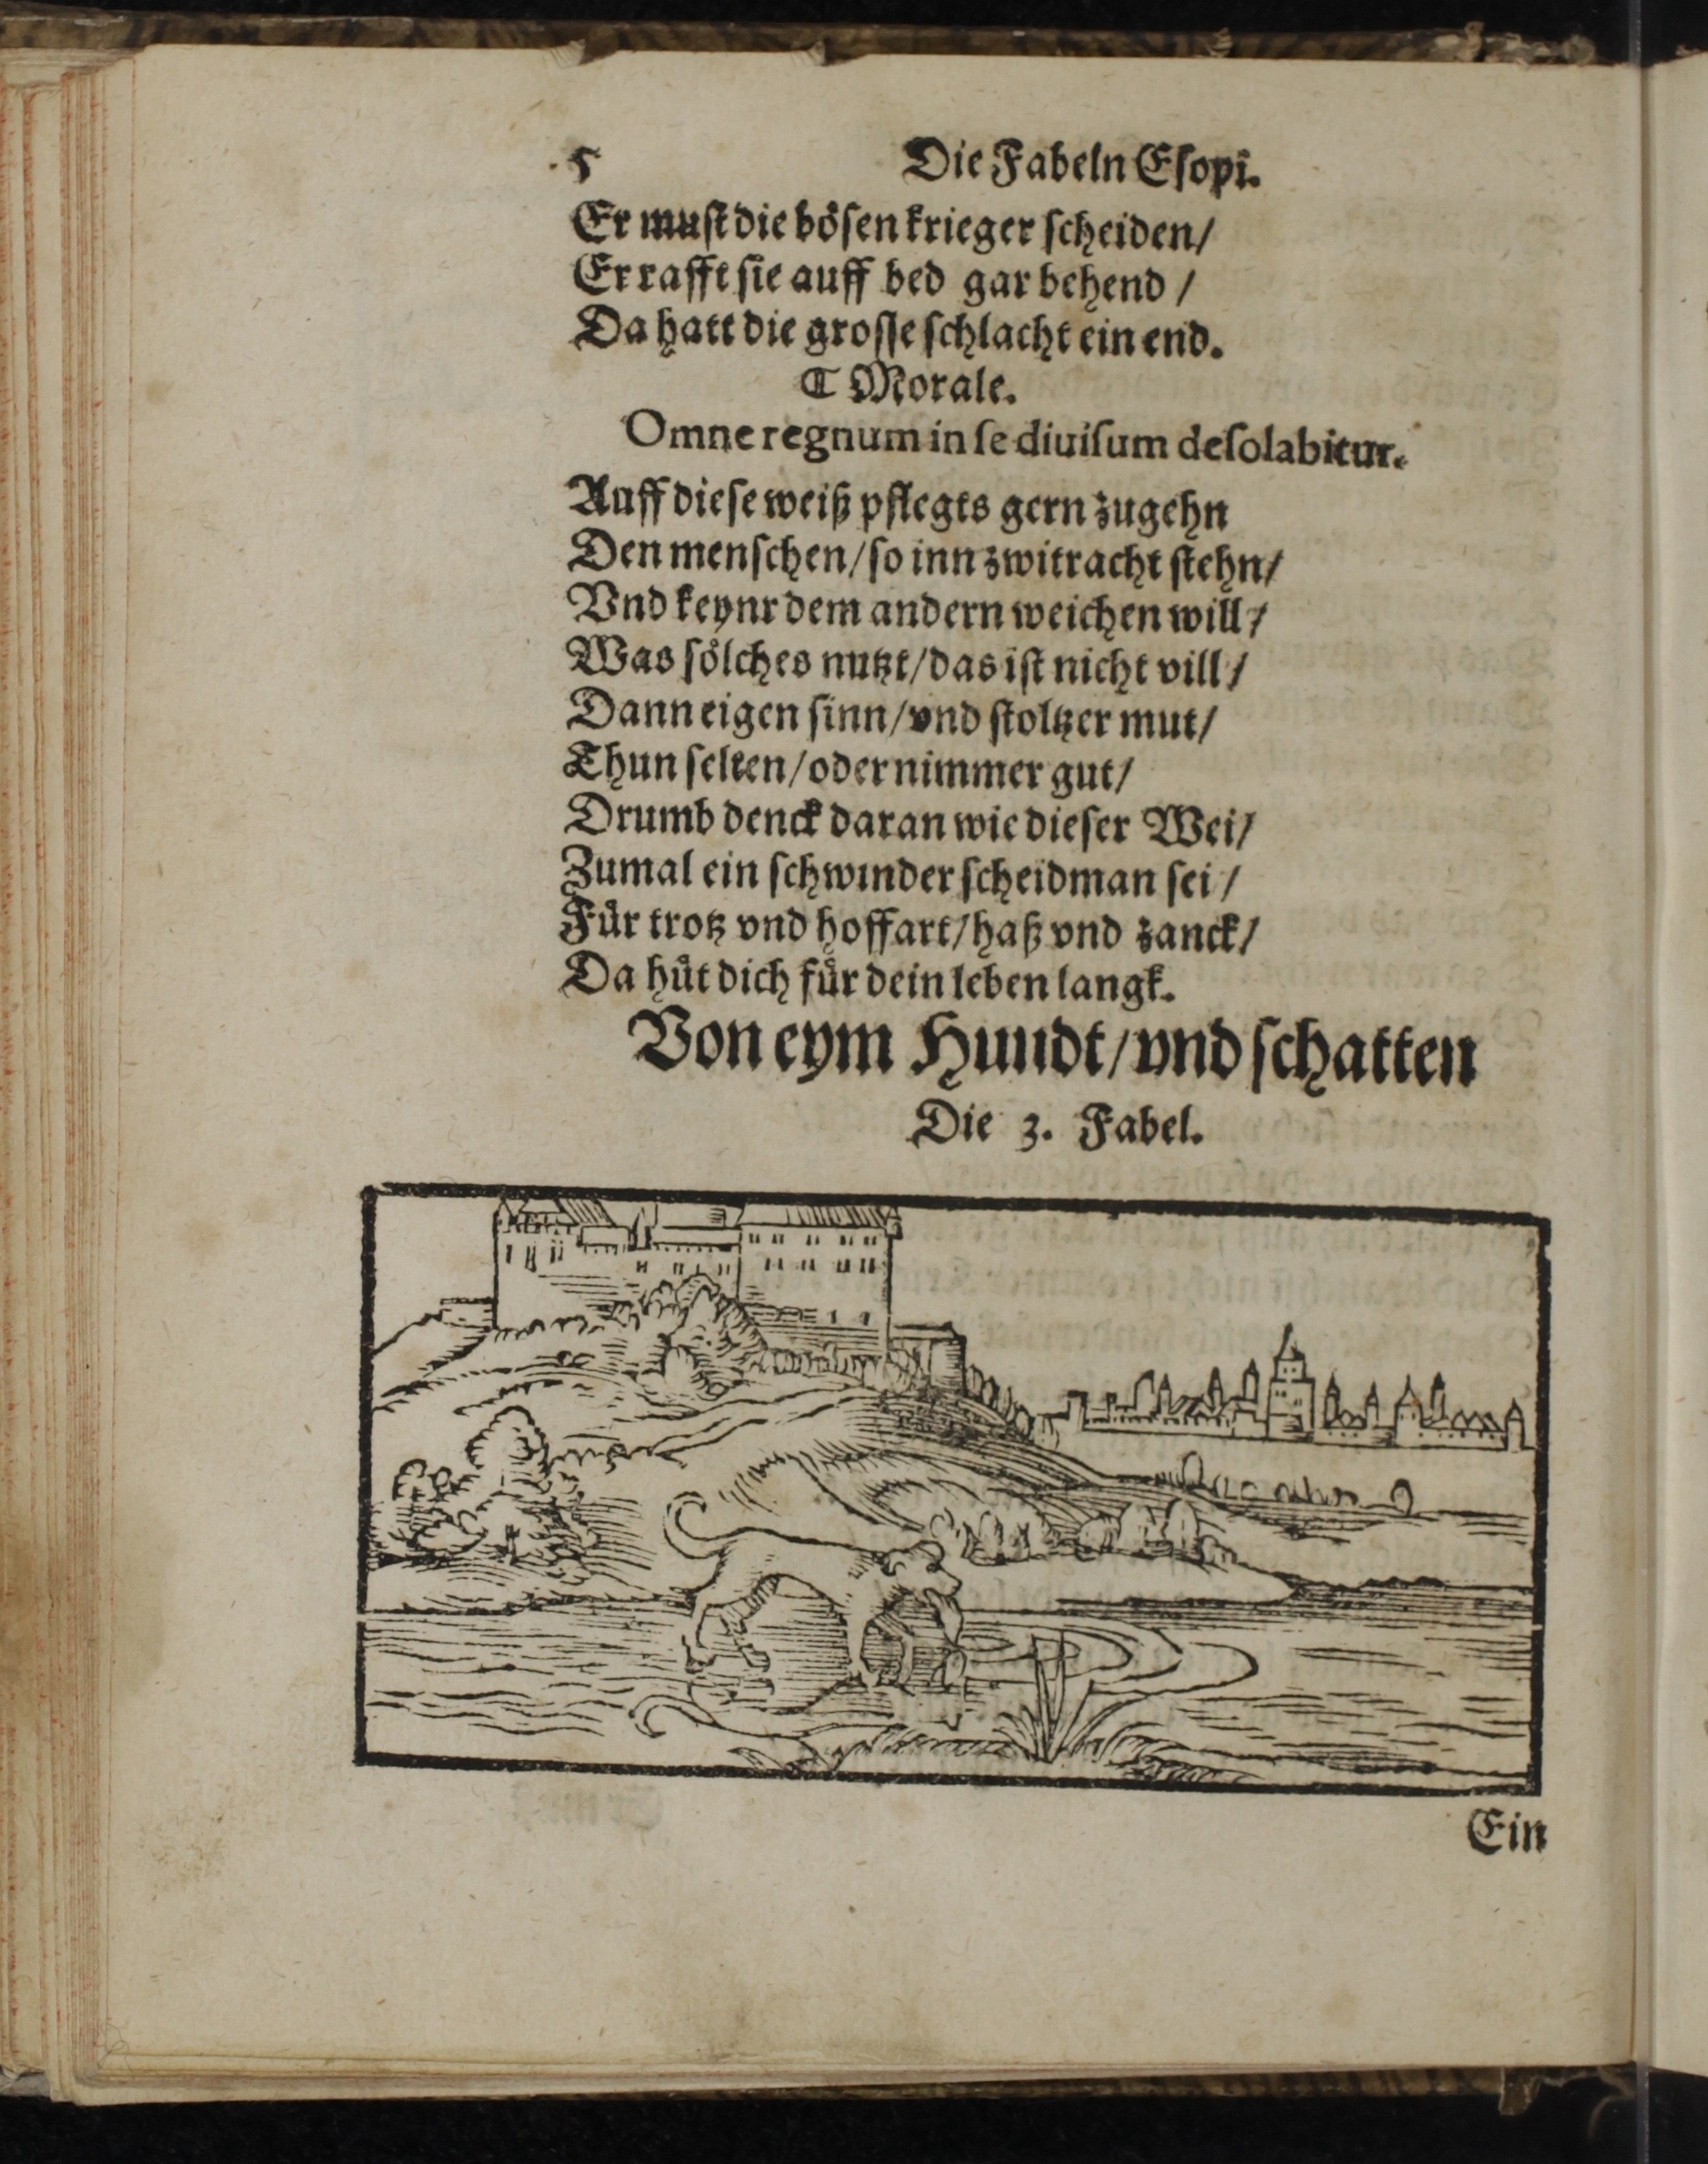 5 Die Fabeln Eſopi.
Er muſt die böſen krieger ſcheiden/
Er rafft ſie auff bed gar behend /
Da hatt die groſſe ſchlacht ein end.
⸿ Morale.
Omne regnum in ſe diuiſum deſolabitur.
Auff dieſe weiß pflegts gern zugehn
Den menſchen/ ſo inn zwitracht ſtehn/
Vnd keynr dem andern weichen will/
Was ſölches nutzt/ das iſt nicht vill/
Dann eigen ſinn/ vnd ſtoltzer mut/
Thun ſelten/ oder nimmer gut/
Drumb denck daran wie dieſer Wei/
Zumal ein ſchwinder ſcheidman ſei/
Für trotz vnd hoffart/ haß vnd zanck/
Da hüt dich für dein leben langk.
Von eym Hundt/ vnd ſchatten
Die 3. Fabel.
Ein